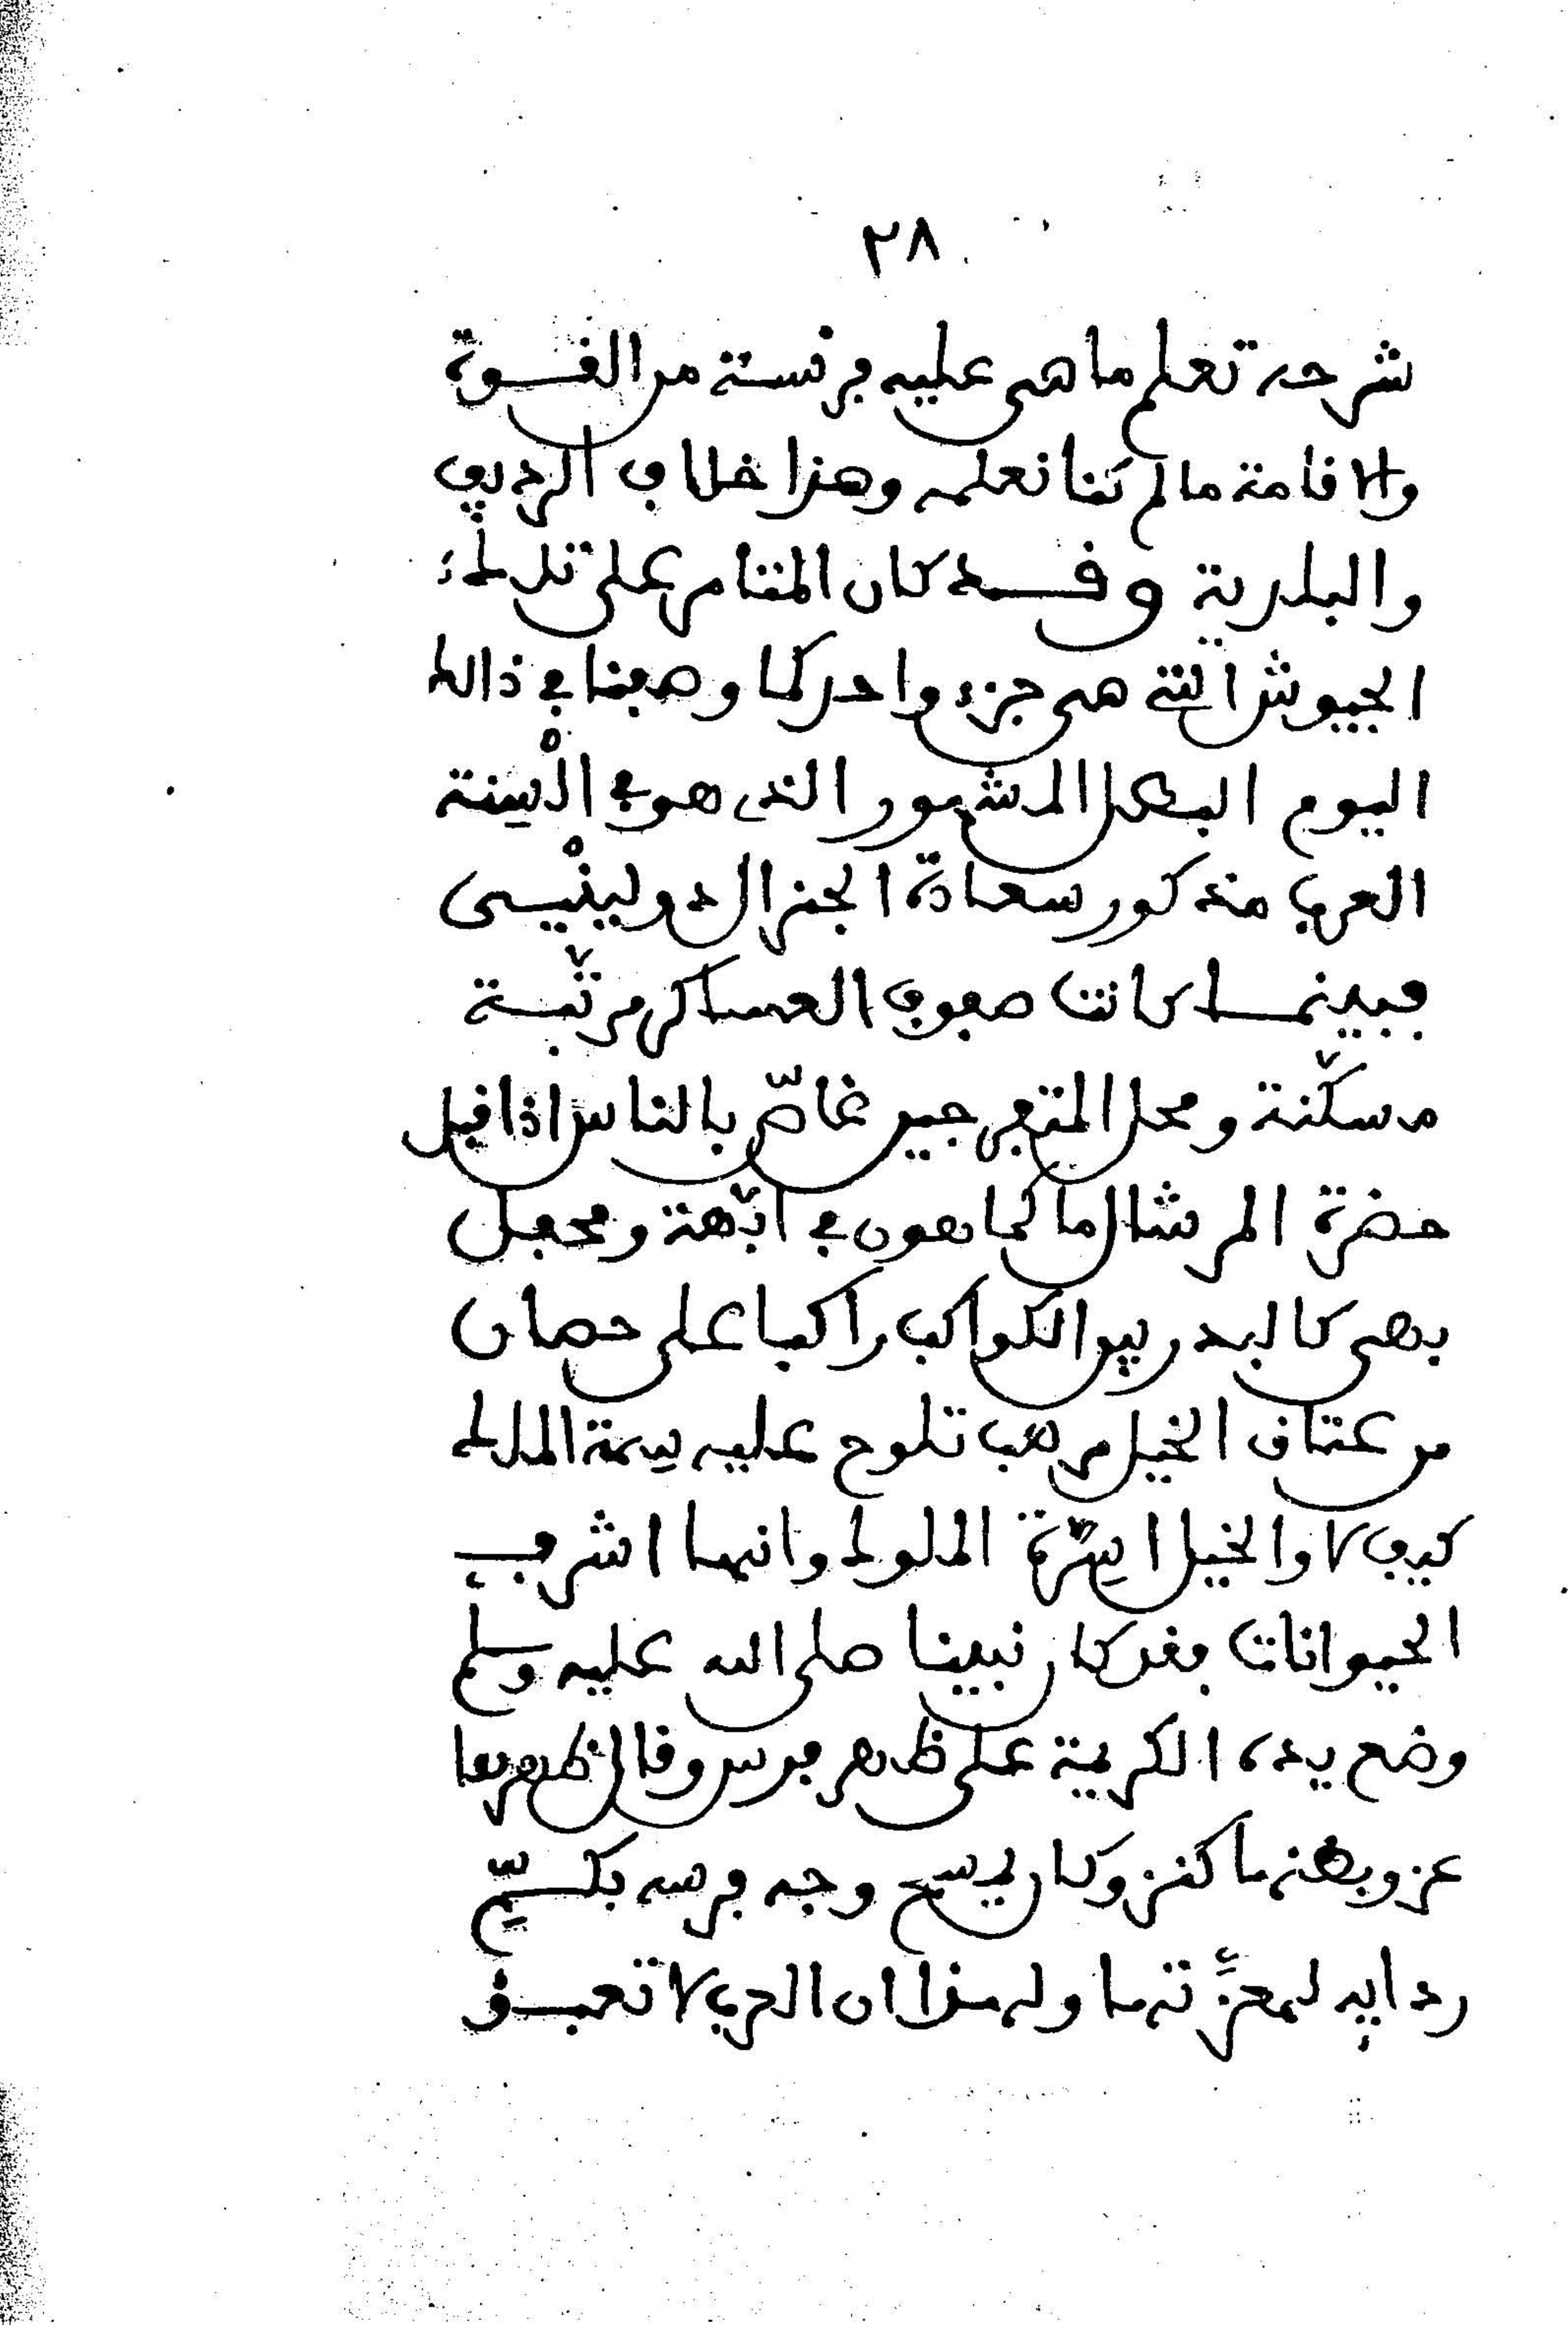 ٢٨
شرحه تعلم ما هي عليه فرنسة من القوة
والاقامة ما لم كنا نعلمه وهذا خلاف الرديف
والبلدية وقد كان المقدام على تلك
الجيوش التي هي جزء واحد كما وصفنا في ذالك
اليوم البطل المشهور الذى هو في الْسِنة
العرب مذكور سعادة الجنرال دولينْيسى
فبينما كانت صفوف العساكر مرتّبة
مسكّنة ومحل المتفرجين غاصّ بالناس اذ اقبل
حضرة المرشال ماكماهون في ابّهة ومحفل
بهى كالبدر بين الكواكب راكبا على حصان
من عتاق الخيل مرهب تلوح عليه سِمة الملك
كيف لا والخيل اسِرّة الملوك وانها اشرف
الحيوانات فقد كان نبينا صلى الله عليه وسلم
وضع يده الكريمة على ظهر فرس وقال ظهرها
عز وبطنها كنز وكان يمسح وجه فرسه بكسيّح
ردايه لمعزّتها ولهذا ان العرب لا تعبق